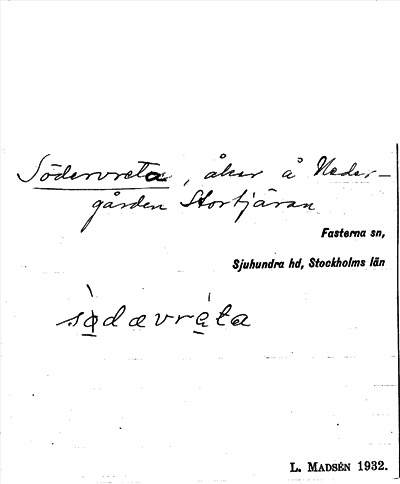 Södervreta, åker å Neder-
gården Stortjäran
Fasterna sn,
Sjuhundra hd, Stockholms län
sàdævréta
L. MADSÉN 1932.